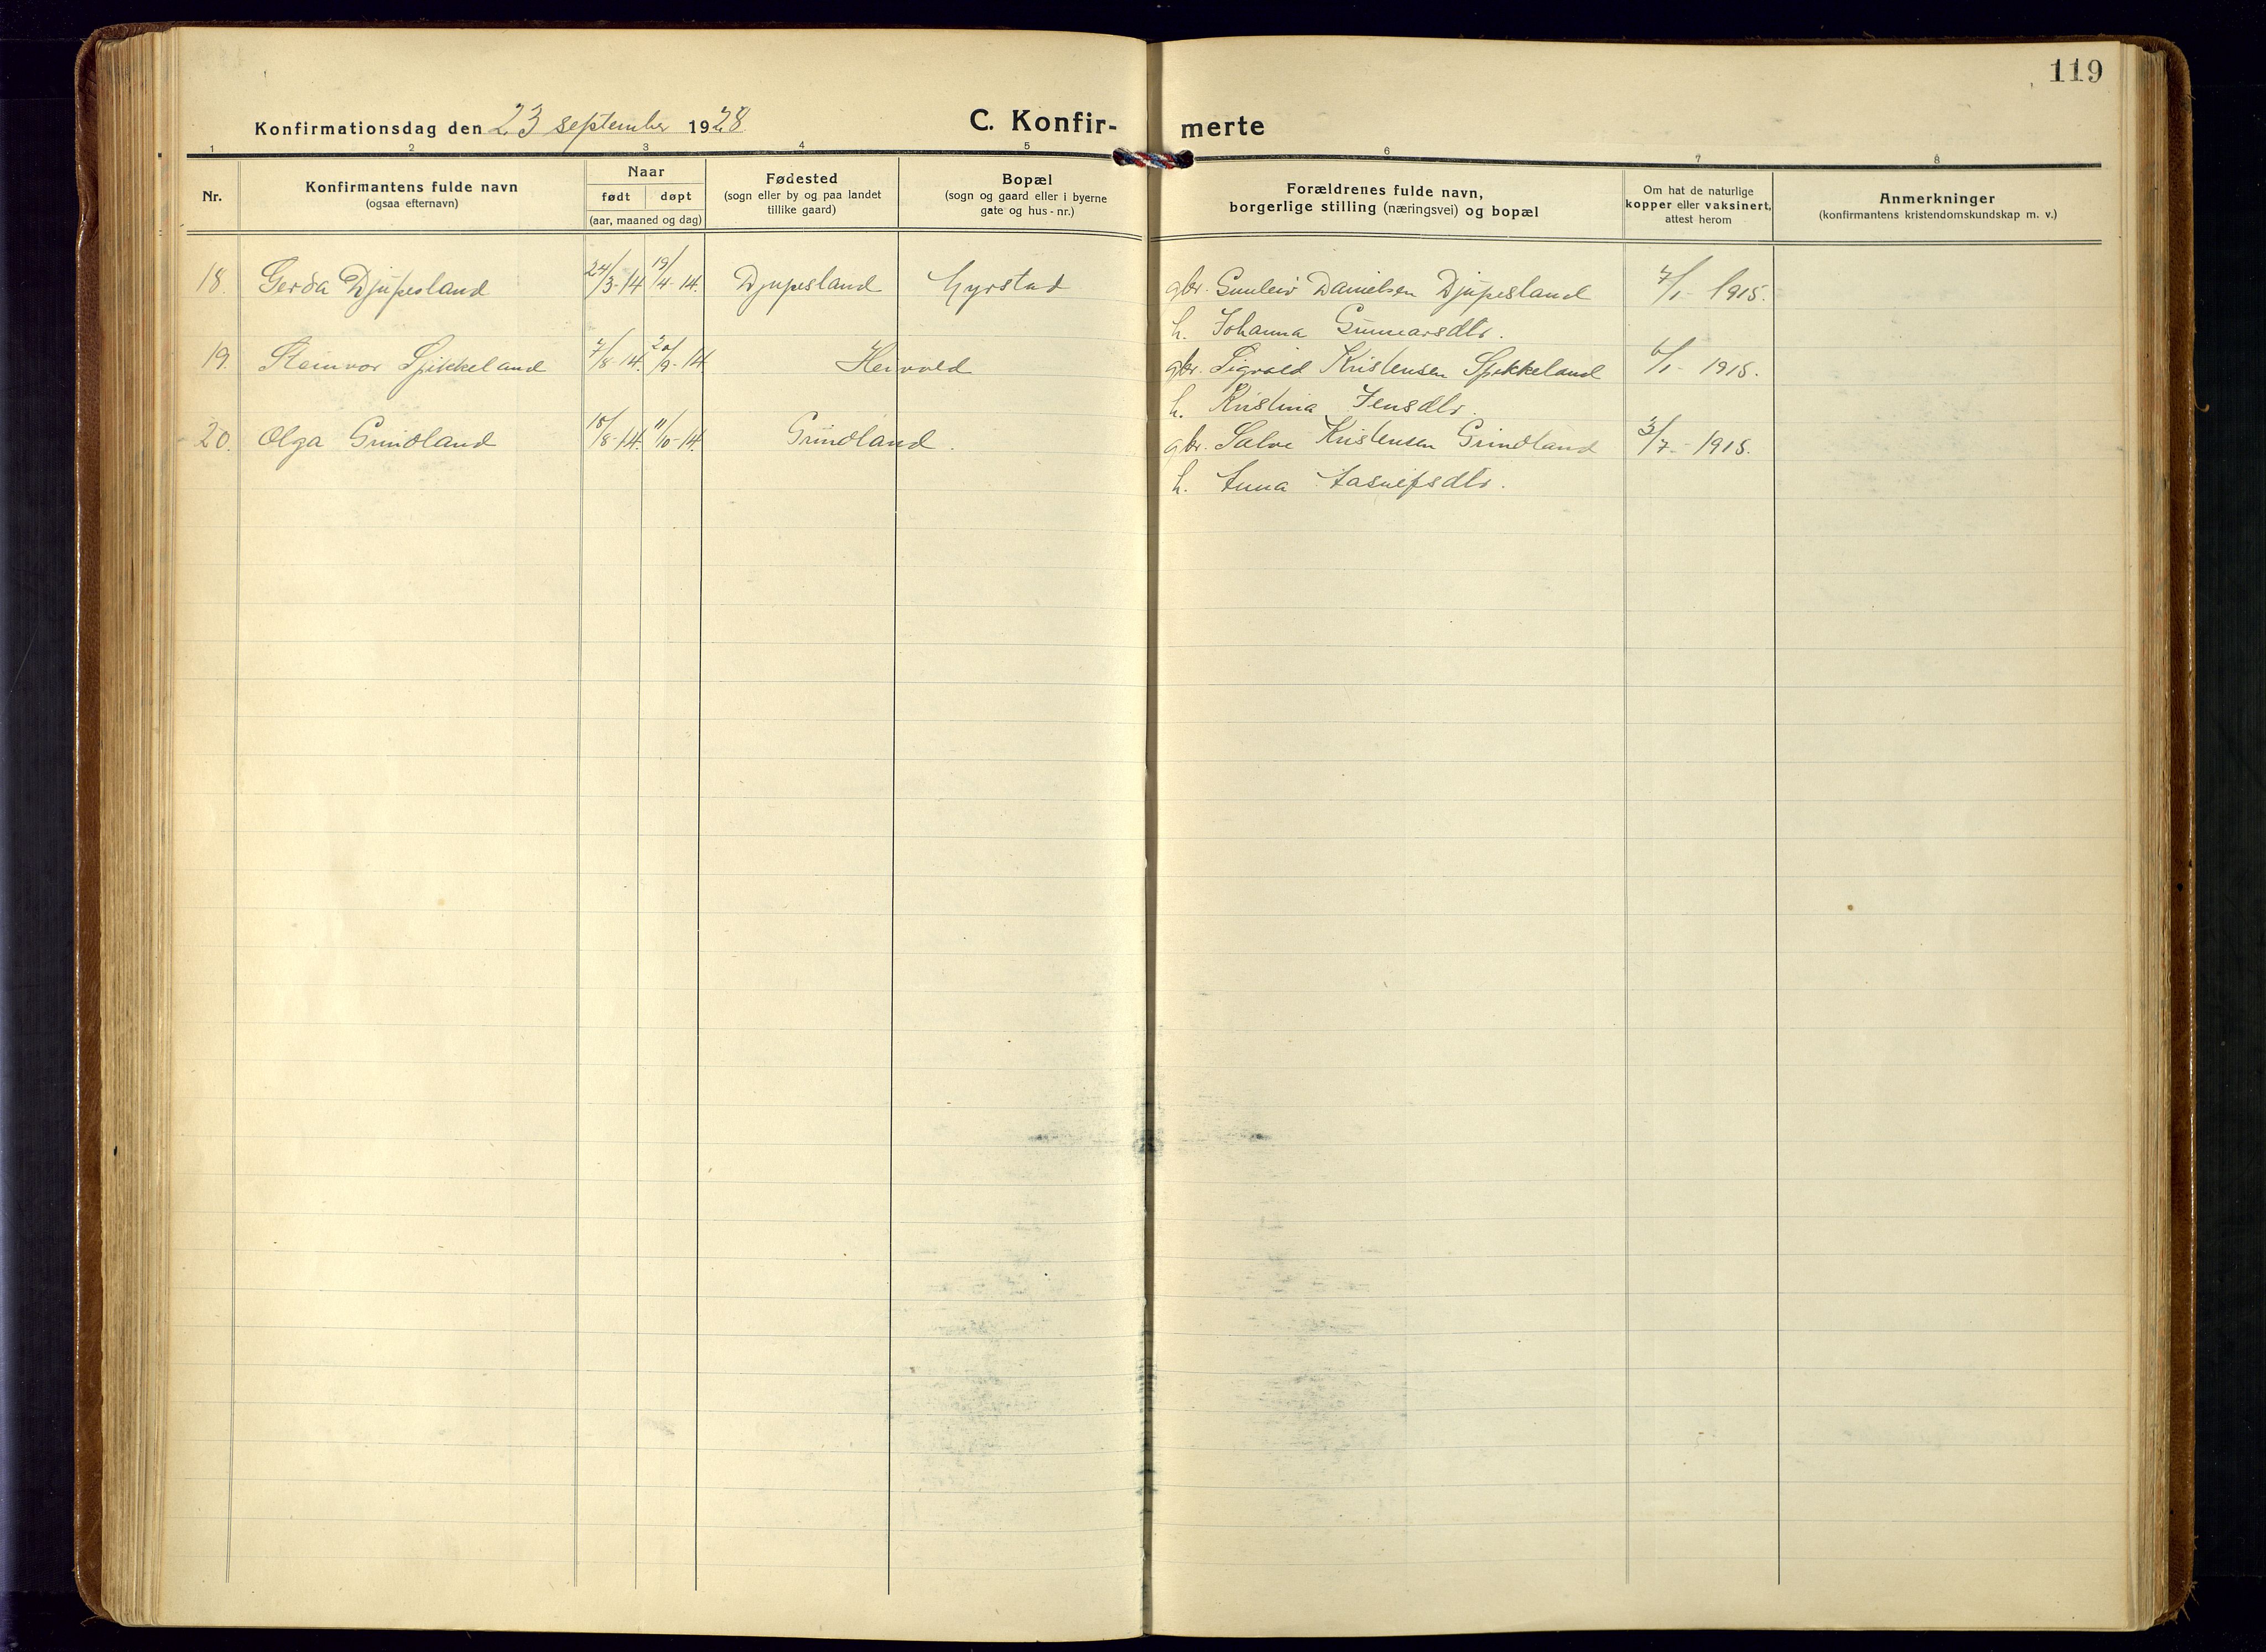 119
Konfirmationsdag den 23 september 1928
C. Konfir- merte
1 2 3 4 5 6 7 8
Nr.
Konfirmantens fulde navn
(ogsaa efternavn)
Naar
født døpt
(aar, maaned og dag)
Fødested
(sogn eller by og paa landet
tillike gaard)
Bopæl
(sogn og gaard eller i byerne
gate og hus-nr.)
Forældrenes fulde navn,
borgerlige stilling (næringsvei) og bopæl
Om hat de naturlige
kopper eller vaksinert,
attest herom
Anmerkninger
(konfirmantens kristendomskundskap m. v.)
18. Gerda Djupesland 24/3-14 19/4-14. Djupesland Gyrstad gbr. Gunleiv Danielsen Djupesland 7/1- 1915.
h. Johanna Gunnarsdtr.
19. Steinvor Spikkeland 7/8-14. 20/9-14. Heivold gbr. Sigvald Kristensen Spikkeland 6/1- 1915.
h. Kristina Jensdtr.
20. Olga Grindland 18/8-14. 11/10-14. Grindland. gbr. Salve Kristensen Grindland 3/7.- 1915.
h. Anna